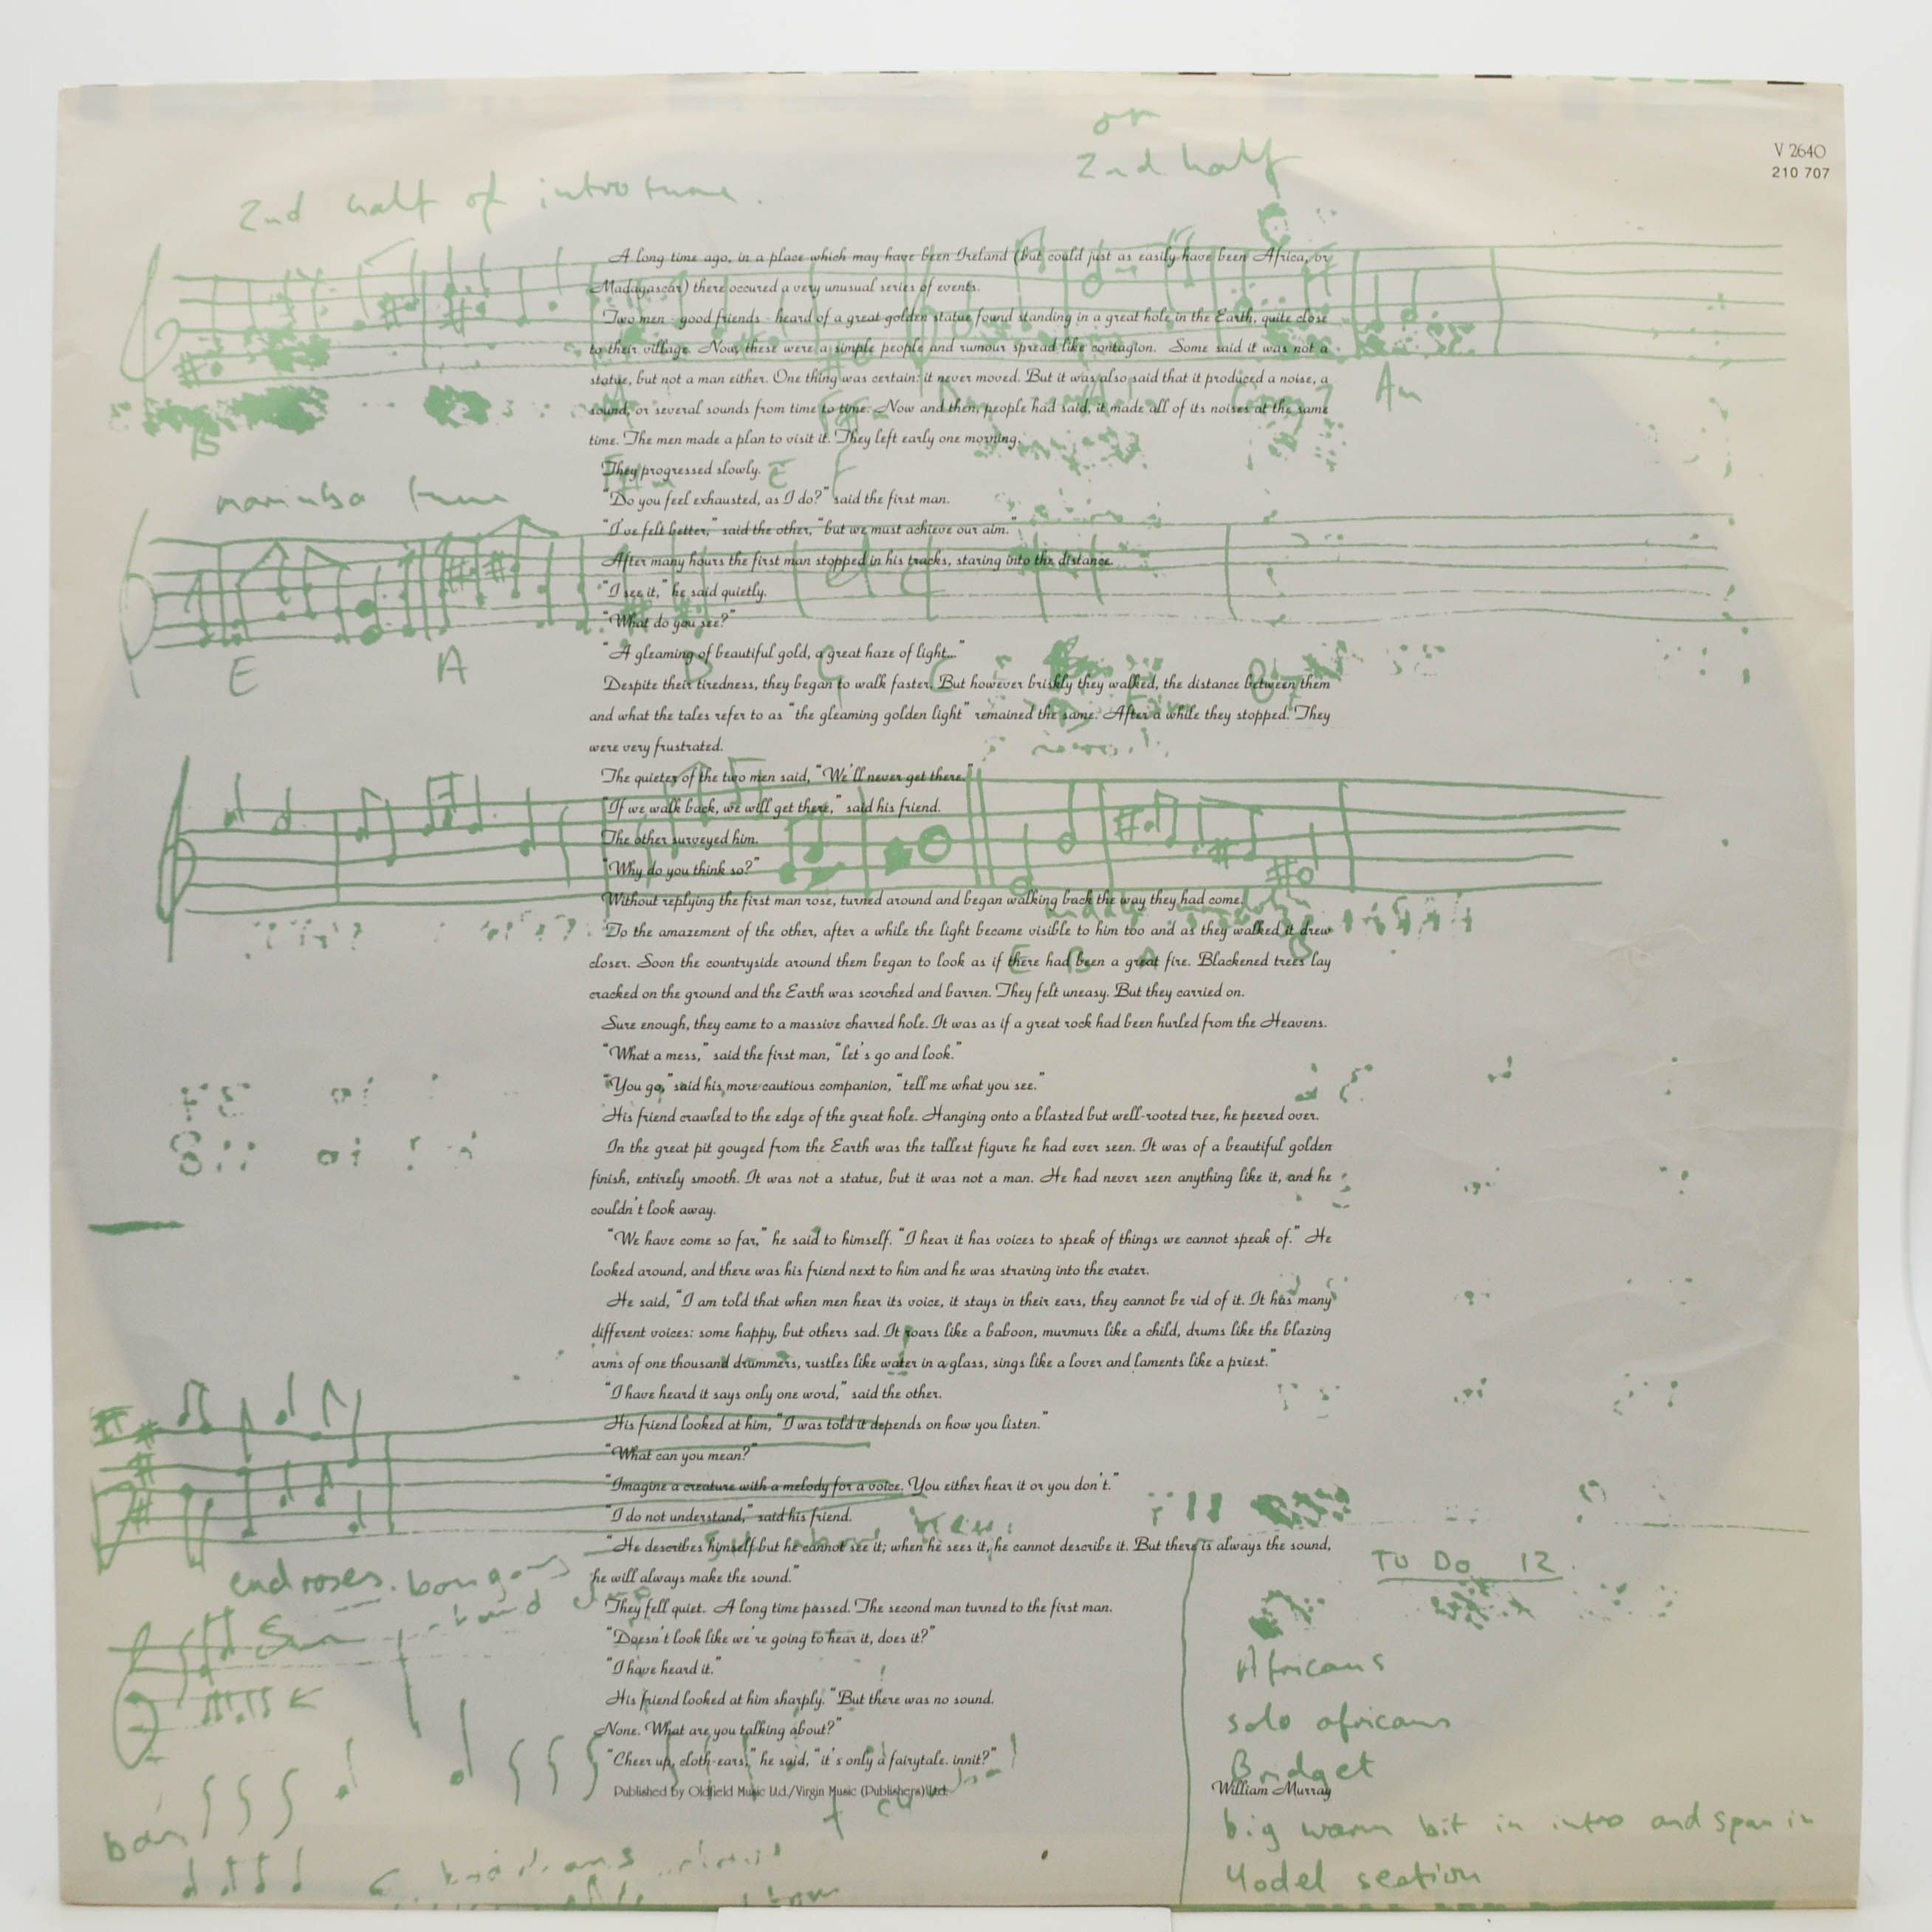 or
2nd half
V 2640
210 707
2nd half of intro tune.
A long time ago, in a place which may have been Ireland (but could just as easily have been Africa, or
Madagascar) there occured a very unusual series of events.
Two men - good friends - heard of a great golden statue found standing in a great hole in the Earth, quite close
to their village. Now, these were a simple people and rumour spread like contagion. Some said it was not a
statue, but not a man either. One thing was certain: it never moved. But it was also said that it produced a noise, a
Am
sound, or several sounds from time to time. Now and then, people had said, it made all of its noises at the same
time. The men made a plan to visit it. They left early one morning.
They progressed slowly.
marimba tune
"Do you feel exhausted, as I do?" said the first man.
"I've felt better," said the other, "but we must achieve our aim."
After many hours the first man stopped in his tracks, staring into the distance.
"I see it," he said quietly.
"What do you see?"
"A gleaming of beautiful gold, a great haze of light..."
E A B C C
Despite their tiredness, they began to walk faster. But however briskly they walked, the distance between them
and what the tales refer to as "the gleaming golden light" remained the same. After a while they stopped. They
were very frustrated.
The quieter of the two men said, "We'll never get there."
"If we walk back, we will get there," said his friend.
The other surveyed him.
"Why do you think so?"
Without replying the first man rose, turned around and began walking back the way they had come.
To the amazement of the other, after a while the light became visible to him too and as they walked it drew
closer. Soon the countryside around them began to look as if there had been a great fire. Blackened trees lay
E B A B
cracked on the ground and the Earth was scorched and barren. They felt uneasy. But they carried on.
Sure enough, they came to a massive charred hole. It was as if a great rock had been hurled from the Heavens.
"What a mess," said the first man, "let's go and look."
"You go," said his more cautious companion, "tell me what you see."
His friend crawled to the edge of the great hole. Hanging onto a blasted but well-rooted tree, he peered over.
In the great pit gouged from the Earth was the tallest figure he had ever seen. It was of a beautiful golden
finish, entirely smooth. It was not a statue, but it was not a man. He had never seen anything like it, and he
couldn't look away.
"We have come so far," he said to himself. "I hear it has voices to speak of things we cannot speak of." He
looked around, and there was his friend next to him and he was straring into the crater.
He said, "I am told that when men hear its voice, it stays in their ears, they cannot be rid of it. It has many
different voices: some happy, but others sad. It roars like a baboon, murmurs like a child, drums like the blazing
arms of one thousand drummers, rustles like water in a glass, sings like a lover and laments like a priest."
"I have heard it says only one word," said the other.
His friend looked at him, "I was told it depends on how you listen."
"What can you mean?"
"Imagine a creature with a melody for a voice. You either hear it or you don't."
"I do not understand," said his friend.
"He describes himself but he cannot see it; when he sees it, he cannot describe it. But there is always the sound,
he will always make the sound."
TO DO 12.
end roses. bongos
They fell quiet. A long time passed. The second man turned to the first man.
"Doesn't look like we're going to hear it, does it?"
"I have heard it."
Africans
His friend looked at him sharply. "But there was no sound.
None. What are you talking about?"
solo africans
"Cheer up, cloth-ears," he said, "it's only a fairytale. innit?"
Bridget
Published by Oldfield Music Ltd./Virgin Music (Publishers) Ltd.
William Murray
big warm bit in intro and span in
Yodel section